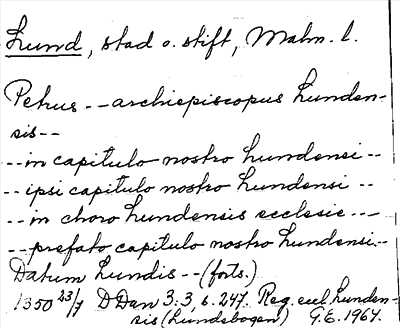 Lund, stad o. stift, Malm. l.
Petrus -- archiepiscopus Lunden-
sis --
-- in capitulo nostro Lundensi --
-- ipsi capitulo nostro Lundensi --
-- in choro Lundensis ecclesie ---
-- prefato capitulo nostro Lundensi. --
Datum Lundis -- (forts.)
1350 23/7 D Dan 3:3, s. 247. Reg. eccl. Lunden-
sis (Lundebogen) G.E. 1964.